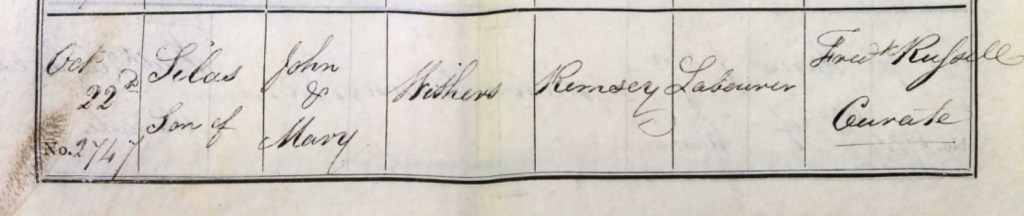 Oct 22d
No. 2747
Silas
Son of
John
&
Mary
Withers
Romsey
Labourer
Fredk Russell
Curate